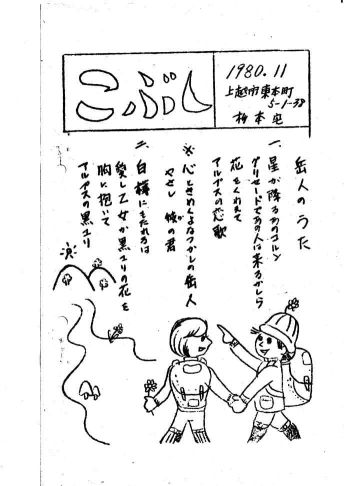 こぶし
1980.11
上越市東本町
5-1-38
岳人のうた
一、星が降るあのコルン
グリセードであの人は来るかしら
花をくわえて
アルプスの恋歌
※心ときめくよなつかしの岳人
やさし 彼の君
二、白樺にもたれるは
愛し乙女か黒ユリの花を
胸に抱いて
アルプスの黒ユリ